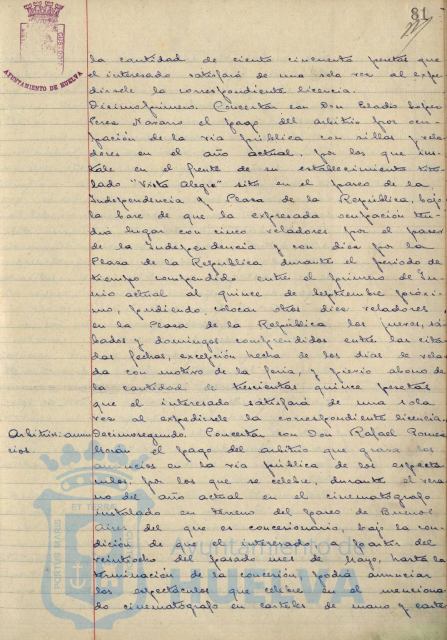 81
AYUNTAMIENTO DE HUELVA
la cantidad de ciento cincuenta pesetas que
el interesado satisfará de una sola vez al expe
dírsele la correspondiente licencia.
Décimoprimero. Concertar con Don Eladio López
Perea Navarro el pago del arbitrio por ocu-
pación de la vía pública con sillas y vela
dores en el año actual, por los que ins-
tale en el frente de su establecimiento titu
lado "Vista Alegre" sito en el paseo de la
Independencia y Plaza de la República, bajo
la base de que la expresada ocupación ten-
drá lugar con cinco veladores por el paseo
de la Independencia y con diez por la
Plaza de la República durante el período de
tiempo comprendido entre el primero de Ju-
nio actual al quince de Septiembre próxi-
mo, pudiendo colocar otros diez veladores
en la Plaza de la República los jueves, sá-
bados y domingos comprendidos entre las cita
das fechas, excepción hecha de los días de vela
da con motivo de la feria, y previo abono de
la cantidad de trescientas quince pesetas
que el interesado satisfará de una sola
vez al expedírsele la correspondiente licencia.
Arbitrio: anun
cios.
Décimosegundo. Concertar con Don Rafael
el pago del arbitrio que grava los
anuncios en la vía pública de los espectá-
culos, por los que se celebre, durante el vera
no del año actual en el cinematógrafo
instalado en terreno del paseo de Buenos
Aires, del que es concesionario, bajo la con-
dición de que el interesado a partir del
veintiocho del pasado mes de Mayo, hasta la
terminación de la concesión, podrá anunciar
los espectáculos que celebre en el menciona-
do cinematógrafo en carteles de mano y carte
Ayuntamiento de
HUELVA
PORTUS MARIS ET TERRAE CUSTODIA